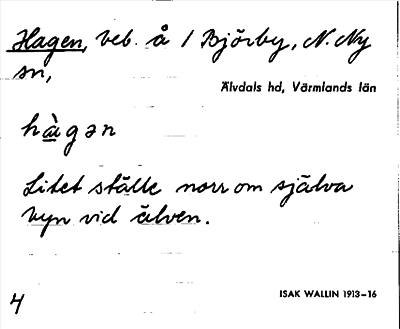 Hagen, beb. å 1 Björby, N. Ny
sn,
Älvdals hd, Värmlands län
hàgən
Litet ställe norr om själva
byn vid älven.
4
ISAK WALLIN 1913–16